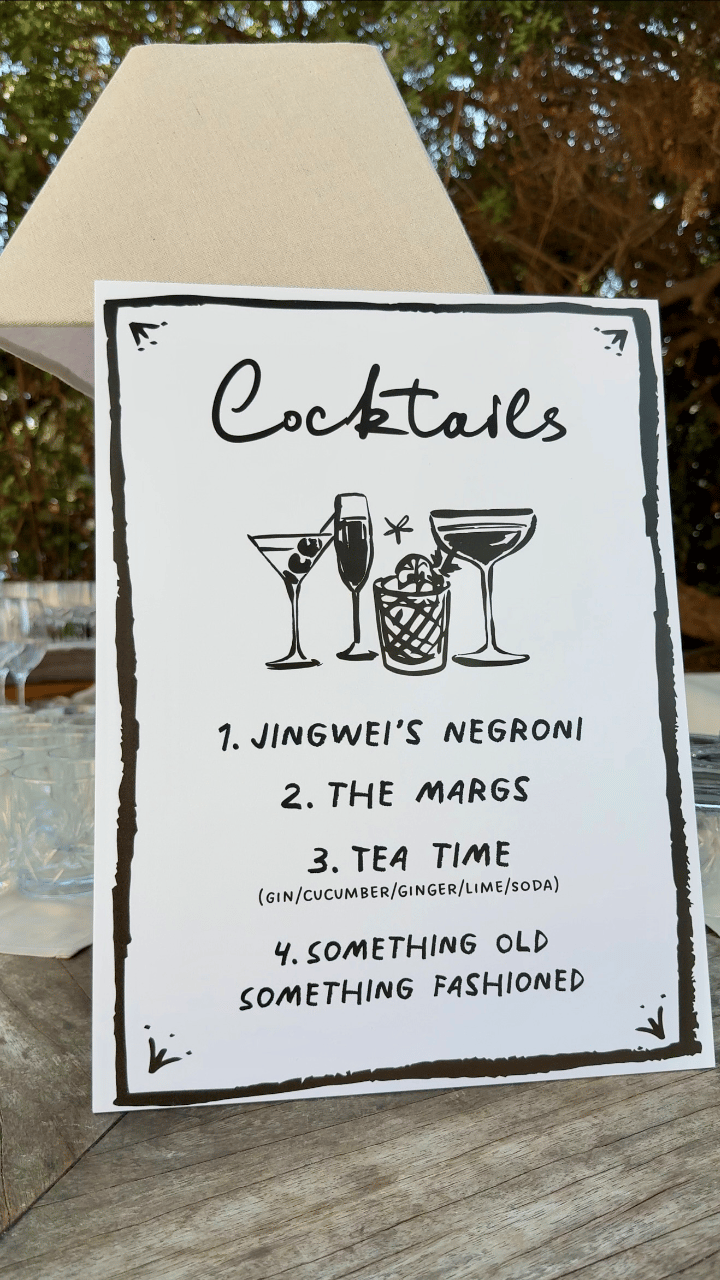 Cocktails
1. JINGWEI'S NEGRONI
2. THE MARGS
3. TEA TIME
(GIN/CUCUMBER/GINGER/LIME/SODA)
4. SOMETHING OLD
SOMETHING FASHIONED